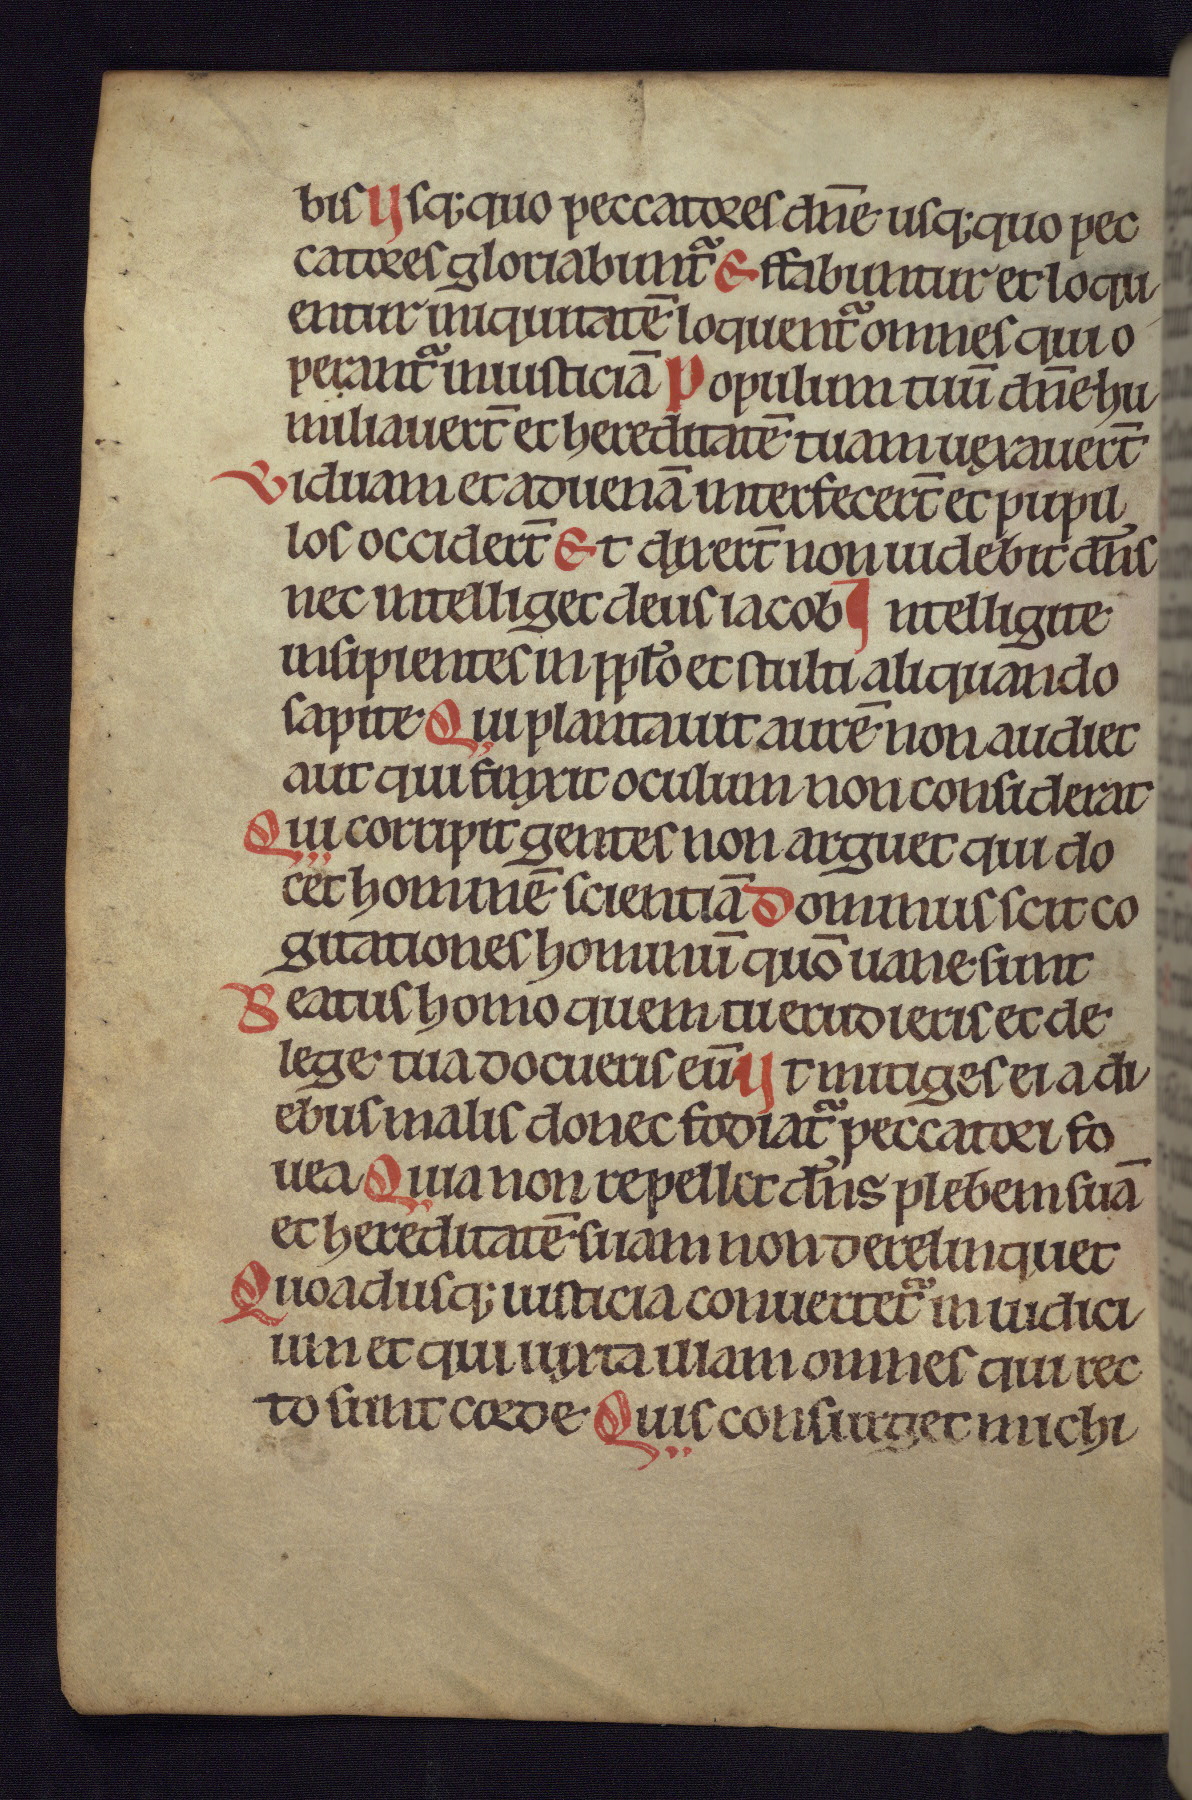 bis Usq;quo peccatores dn̄e usq;quo pec
catores gloriabunt᷑ Effabuntur et loqu
entur iniquitatē loquent᷑ omnes qui o
perant᷑ iniusticiā Populum tuū dn̄e hu
miliauert̄ et hereditatē tuam uexauert̄
Viduam et aduenā interfecert̄ et pupil
los occidert̄ Et dixert̄ non uidebit dn̄s
nec intelliget deus iacob Intelligite
insipientes in pplo̅ et stulti aliquando
sapite Qui plantauit aurē non audiet
aut qui finxit oculum non considerat
Qui corripit gentes non arguet qui do
cet hominē scientiā Dominus scit co
gitationes hominū quō uane sunt
Beatus homo quem tu erudieris et de
lege tua docueris eū Ut mitiges ei a di
ebus malis donec fodiat᷑ peccatori fo
uea Quia non repellet dn̄s plebem suā
et hereditatē suam non derelinquet
Quoadusq; iusticia conuertet᷑ in iudici
um et qui iuxta illam omnes qui rec
to sunt corde Quis consurget michi